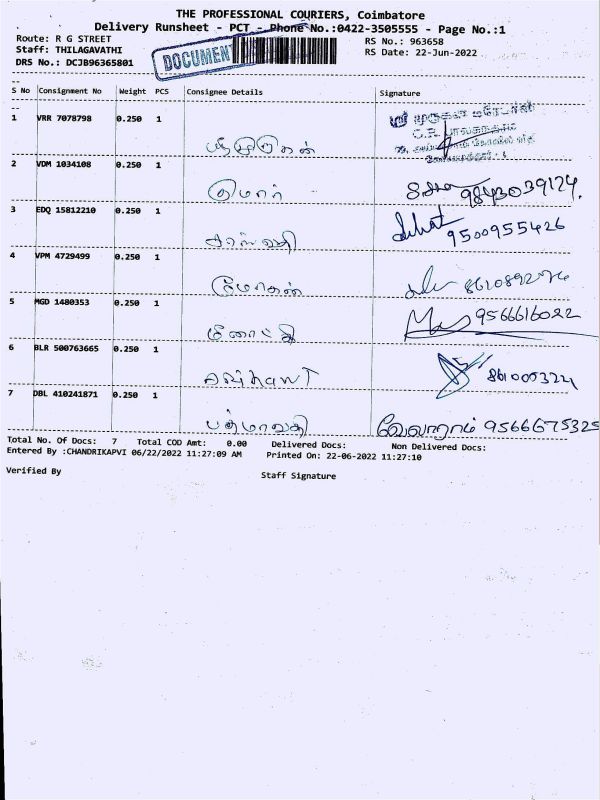 THE PROFESSIONAL COURIERS, Coimbatore
Delivery Runsheet - PCT - Phone No.:0422-3505555 - Page No.:1
Route: R G STREET
RS No.: 963658
Staff: THILAGAVATHI
RS Date: 22-Jun-2022
DRS No.: DCJB96365801
DOCUMENT
S No Consignment No Weight PCS Consignee Details Signature
1 VRR 7078798 0.250 1
2 VDM 1034108 0.250 1 குமார் 9843039124.
3 EDQ 15812210 0.250 1 9500955426
4 VPM 4729499 0.250 1
5 MGD 1480353 0.250 1 9566616022
6 BLR 500763665 0.250 1
7 DBL 410241871 0.250 1 பத்மாவதி 9566675325
Total No. Of Docs: 7 Total COD Amt: 0.00 Delivered Docs: Non Delivered Docs:
Entered By :CHANDRIKAPVI 06/22/2022 11:27:09 AM Printed On: 22-06-2022 11:27:10
Verified By Staff Signature